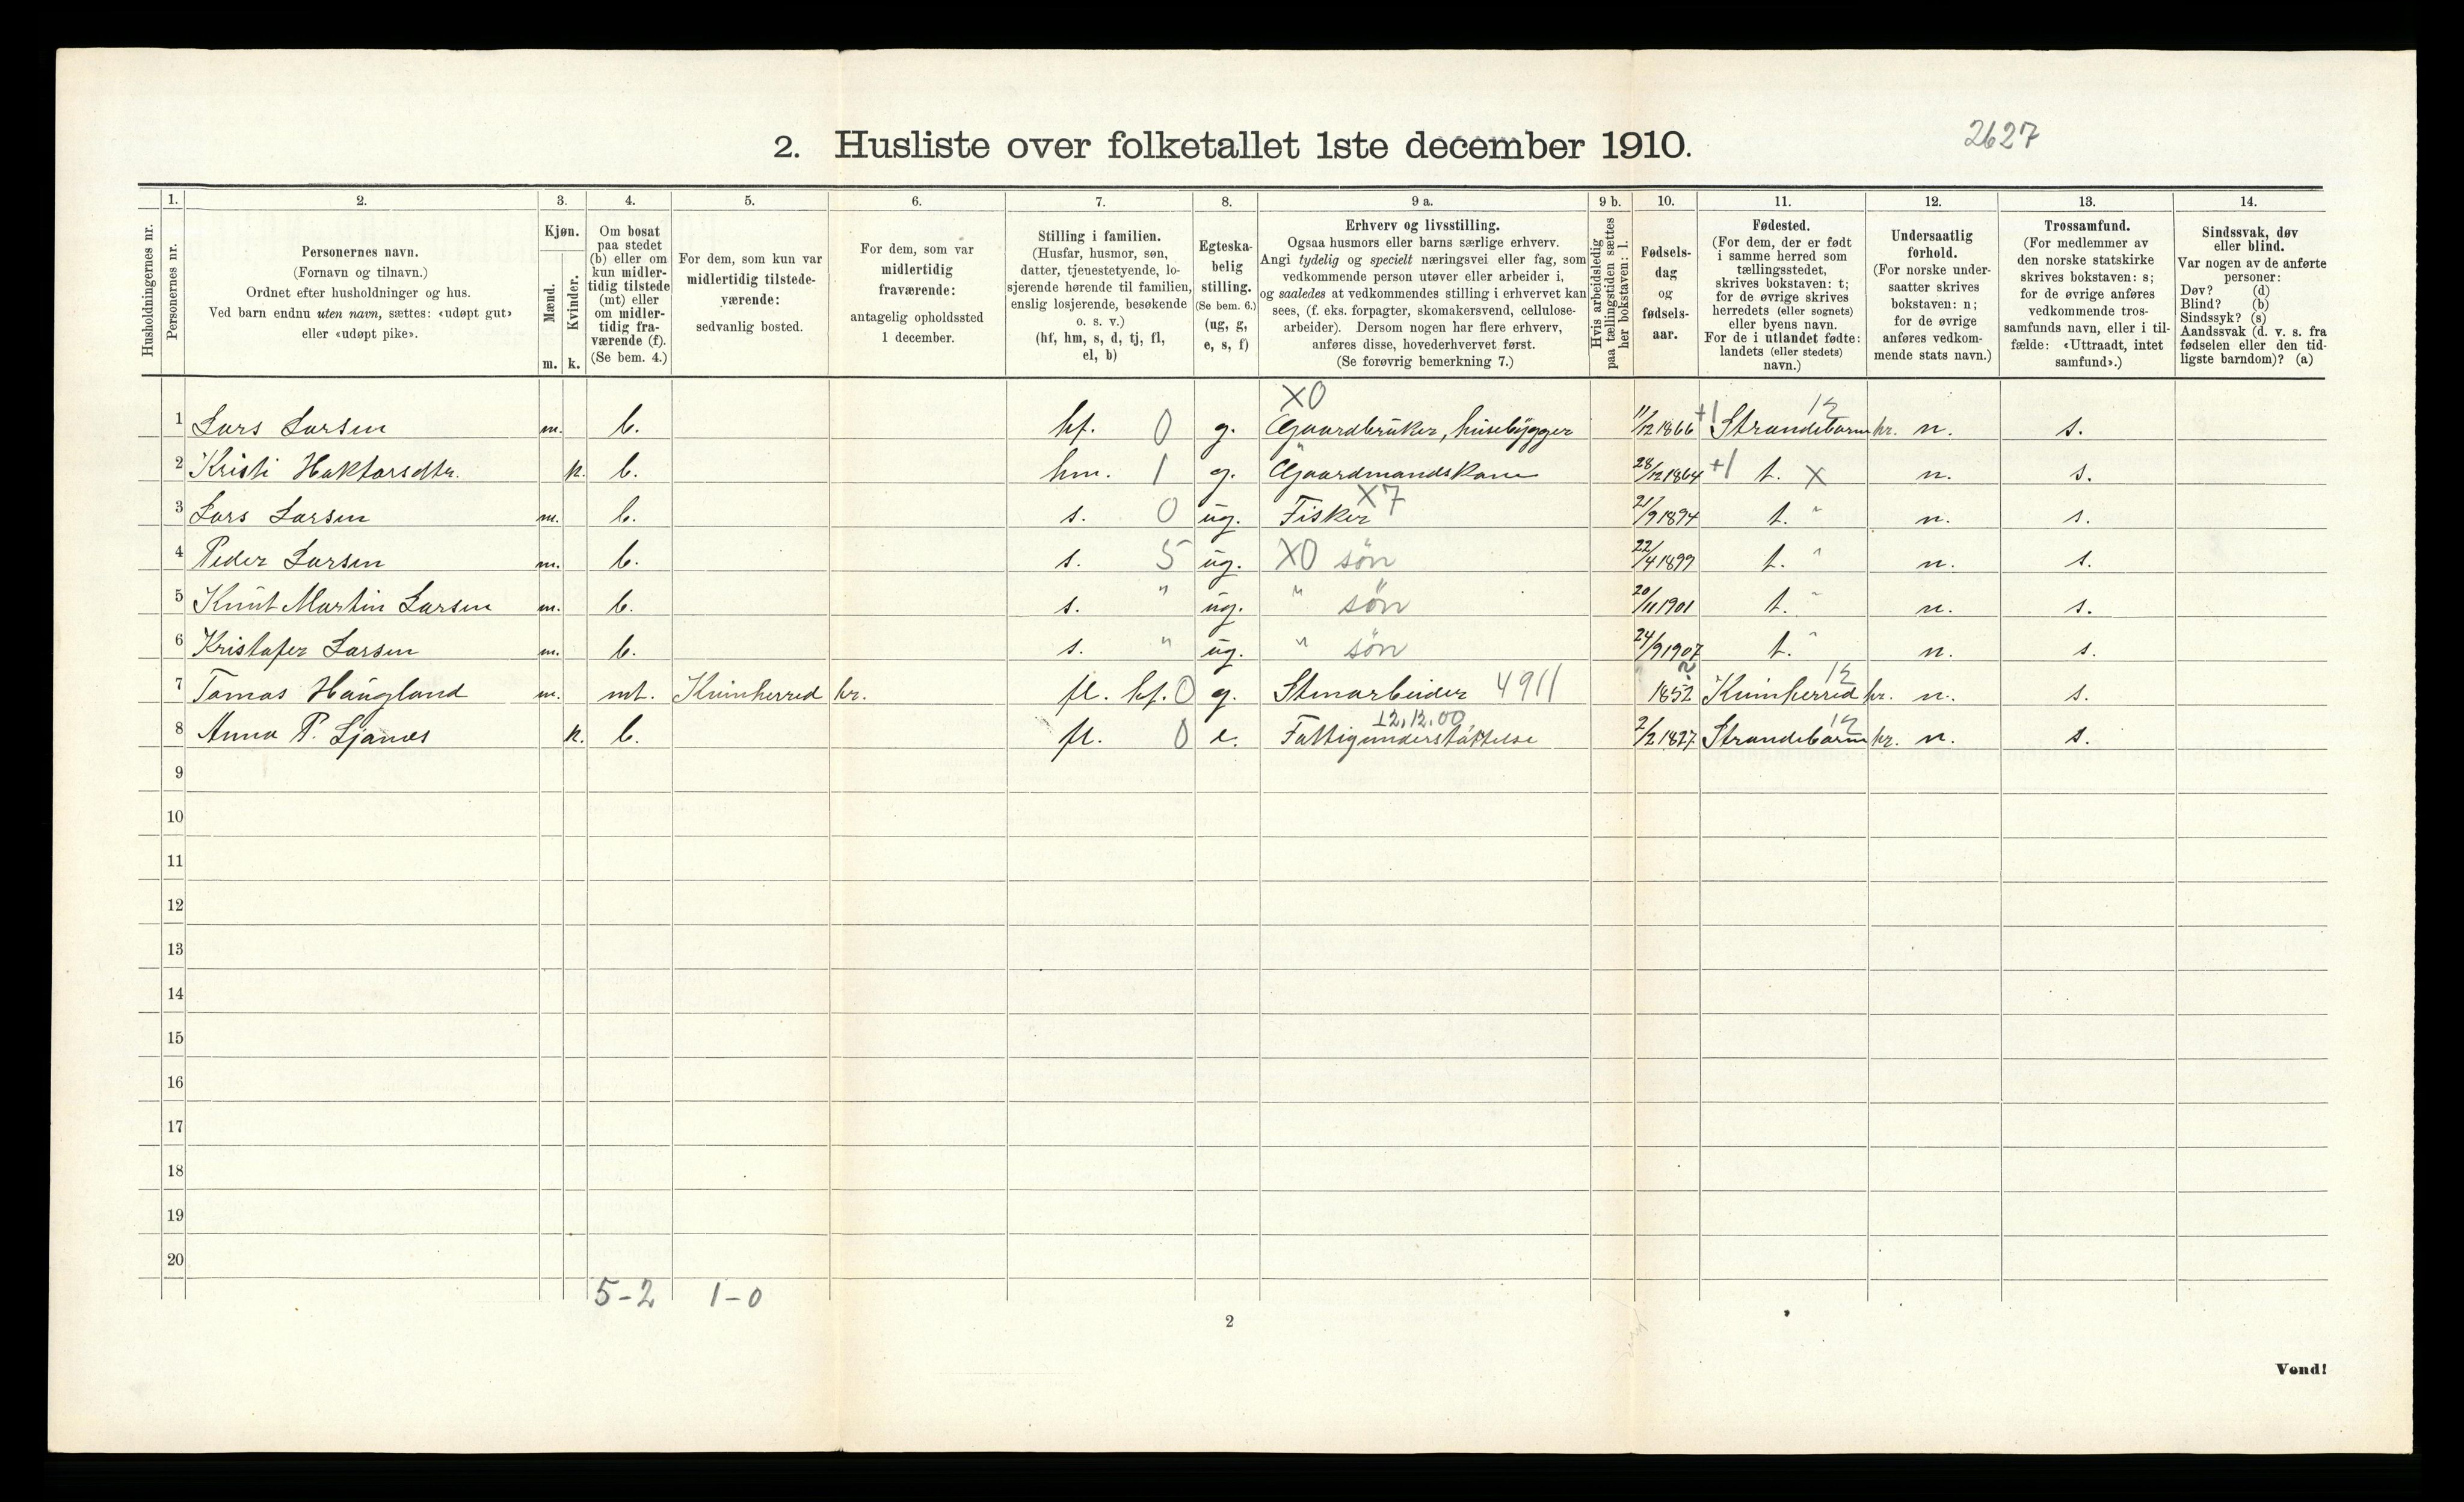 2627
2. Husliste over folketallet 1ste december 1910.
Husholdningernes nr.
1. 2. 3. 4. 5. 6. 7. 8. 9 a. 9 b. 10. 11. 12. 13. 14.
Personernes nr.
Personernes navn.
(Fornavn og tilnavn.)
Ordnet efter husholdninger og hus.
Ved barn endnu uten navn, sættes: «udøpt gut»
eller «udøpt pike».
Kjøn.
Mænd.
Kvinder.
m. k.
Om bosat
paa stedet
(b) eller om
kun midler-
tidig tilstede
(mt) eller
om midler-
tidig fra-
værende (f).
(Se bem. 4.)
For dem, som kun var
midlertidig tilstede-
værende:
sedvanlig bosted.
For dem, som var
midlertidig
fraværende:
antagelig opholdssted
1 december.
Stilling i familien.
(Husfar, husmor, søn,
datter, tjenestetyende, lo-
sjerende hørende til familien,
enslig losjerende, besøkende
o. s. v.)
(hf, hm, s, d, tj, fl,
el, b)
Egteska-
belig
stilling.
(Se bem. 6.)
(ug, g,
e, s, f)
Erhverv og livsstilling.
Ogsaa husmors eller barns særlige erhverv.
Angi tydelig og specielt næringsvei eller fag, som
vedkommende person utøver eller arbeider i,
og saaledes at vedkommendes stilling i erhvervet kan
sees, (f. eks. forpagter, skomakersvend, cellulose-
arbeider). Dersom nogen har flere erhverv,
anføres disse, hovederhvervet først.
(Se forøvrig bemerkning 7.)
Hvis arbeidsledig
paa tællingstiden sættes
her bokstaven: l.
Fødsels-
dag
og
fødsels-
aar.
Fødested.
(For dem, der er født
i samme herred som
tællingsstedet,
skrives bokstaven: t;
for de øvrige skrives
herredets (eller sognets)
eller byens navn.
For de i utlandet fødte:
landets (eller stedets)
navn.)
Undersaatlig
forhold.
(For norske under-
saatter skrives
bokstaven: n;
for de øvrige
anføres vedkom-
mende stats navn.)
Trossamfund.
(For medlemmer av
den norske statskirke
skrives bokstaven: s;
for de øvrige anføres
vedkommende tros-
samfunds navn, eller i til-
fælde: «Uttraadt, intet
samfund».)
Sindssvak, døv
eller blind.
Var nogen av de anførte
personer:
Døv? (d)
Blind? (b)
Sindssyk? (s)
Aandssvak (d. v. s. fra
fødselen eller den tid-
ligste barndom)? (a)
X0 12
1 Lars Larsen m. b. hf. 0 g. Gaardbruker, husebygger 11/12 1866 +1 Strandebarm hr. n. s.
2 Kristi Haktorsdtr. k. b. hm. 1 g. Gaardmandskone 28/12 1864 +1 t. X n. s.
X7
3 Lars Larsen m. b. s. 0 ug. Fisker 21/9 1894 t. " n. s.
4 Peder Larsen m. b. s. 5 ug. X0 søn 22/4 1899 t. " n. s.
5 Knut Martin Larsen m. b. s. " ug. " søn 20/11 1901 t. " n. s.
6 Kristofer Larsen m. b. s. " ug. " søn 24/9 1907 t. " n. s.
2 12
7 Tomas Haugland m. mt. Kvinherred hr. fl. hf. 0 g. Stenarbeider 4911 1852 Kvinherred hr. n. s.
12.12.00 12
8 Anna P. Ljanes k. b. fl. 0 e. Fattigunderstøttelse 2/2 1827 Strandebarm hr. n. s.
9
10
11
12
13
14
15
16
17
18
19
20
5-2 1-0
2
Vend!